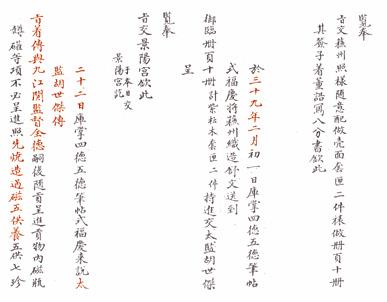 覽奉
旨交蘇州照樣隨意配做壳面套匣二件裱做册頁十册
其簽子着董誥寫八分書欽此
於三十九年二月初一日庫掌四德五德筆帖
式福慶將蘇州織造舒文送到
御臨册頁十册計紫檀木套匣二件持進交太監胡世傑
呈
覽奉
旨交景陽宮欽此
於本日交
景陽宮訖
二十二日庫掌四德五德筆帖式福慶来說太
監胡世傑傳
旨着傳與九江關監督全德嗣後隨貢呈進貢物内磁瓶
罇磁等項不必呈進照先燒造過磁五供養五供七珍